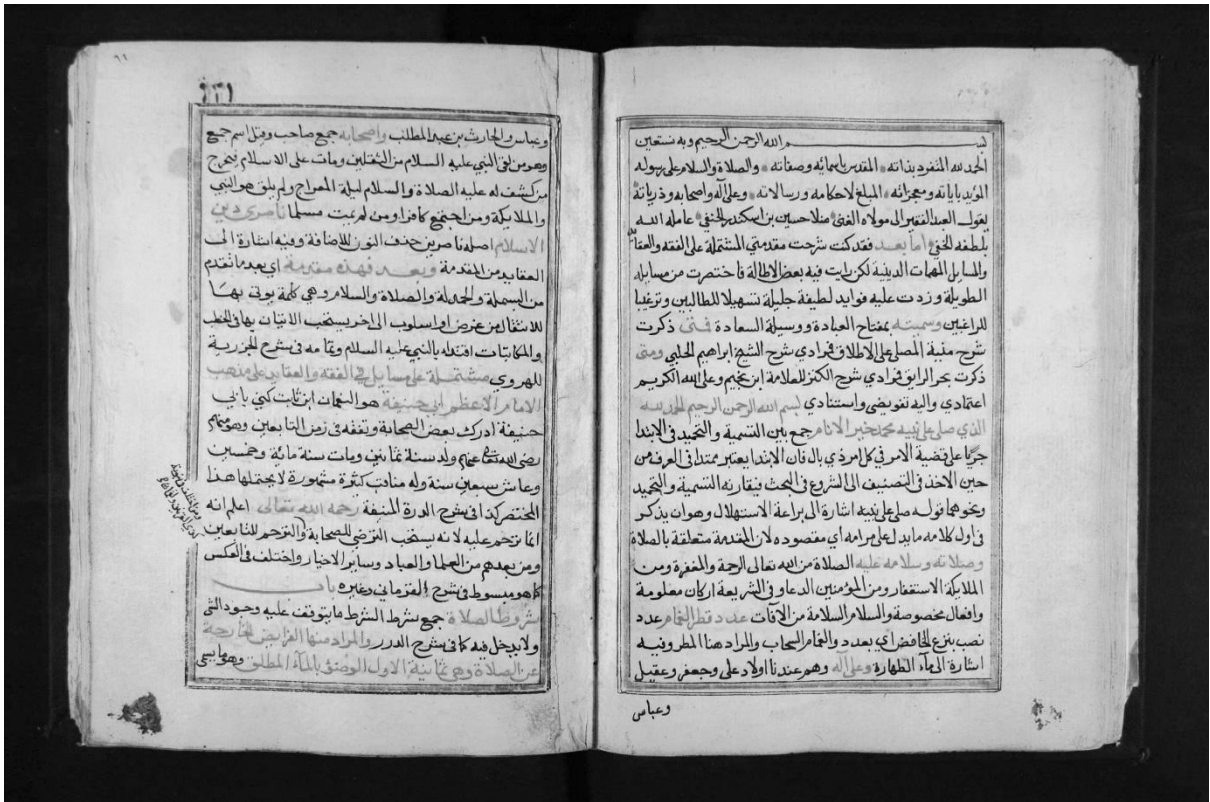 بسم الله الرحمن الرحيم وبه نستعين
الحمد لله المنفرد بذاته المقدس باسمائه وصفاته والصلاة والسلام على رسوله
المؤيد باياته ومعجزاته المبلغ لاحكامه ورسالاته وعلى آله واصحابه وذرياته
يقول العبد الفقير الى مولاه الغني منلا حسين بن اسكندر الحنفي عامله الله
بلطفه الخفي اما بعد فقد كنت شرحت مقدمتي المشتملة على الفقه والعقايد
والمسايل المهمات الدينية لكن رايت فيه بعض الاطالة فاختصرت من مسايله
الطويلة وزدت عليه فوايد لطيفة جليلة تسهيلا للطالبين وترغيبا
للراغبين وسميته بمفتاح العبادة ووسيلة السعادة فمتى ذكرت
شرح منية المصلي على الاطلاق فمرادي شرح الشيخ ابراهيم الحلبي ومتى
ذكرت بحر الرايق فمرادي شرح الكنز للعلامة ابن نجيم وعلى الله الكريم
اعتمادي واليه تفويضي واستنادي بسم الله الرحمن الرحيم الحمد لله
الذي صلى على نبيه محمد خير الانام جمع بين التسمية والتحميد في الابتدا
جريا على قضية الامر في كل امر ذي بال فان الابتدا يعتبر ممتدا في العرف من
حين الاخذ في التصنيف الى الشروع في البحث فيقارنه التسمية والتحميد
ونحوهما قوله صلى على نبيه اشارة الى براعة الاستهلال وهو ان يذكر
في اول كلامه ما يدل على مرامه أي مقصوده لان المقدمة متعلقة بالصلاة
وصلاته وسلامه عليه الصلاة من الله تعالى الرحمة والمغفرة ومن
الملايكة الاستغفار ومن المؤمنين الدعا وفي الشريعة اركان معلومة
وافعال مخصوصة والسلام السلامة من الآفات عدد قطر الغمام عدد
نصب بنزع الخافض أي بعدد والغمام السحاب والمراد هنا المطر وفيه
اشارة الى مآء الطهارة وعلى آله وهم عندنا اولاد علي وجعفر وعقيل
وعباس
وعباس والحارث بن عبد المطلب واصحابه جمع صاحب وقيل اسم جمع
وهو من لقى النبي عليه السلام من الثقلين ومات على الاسلام فيخرج
من كشف له عليه الصلاة والسلام ليلة المعراج ولم يلق هو النبي
والملايكة ومن اجتمع كافرا ومن لم يمت مسلما ناصري دين
الاسلام اصله ناصرين حذف النون للاضافة وفيه اشارة الى
العقايد من المقدمة وبعد فهذه مقدمة اي بعد ما تقدم
من البسملة والحمدلة والصلاة والسلام وهي كلمة يوتى بها
للانتقال من غرض او اسلوب الى اخر يستحب الاتيان بها في الخطب
والمكاتبات اقتداء بالنبي عليه السلام وتمامه في شرح الجزرية
للهروي مشتملة على مسايل في الفقه والعقايد على مذهب
الامام الاعظم ابي حنيفة هو النعمان ابن ثابت كني بابي
حنيفة ادرك بعض الصحابة وتفقه في زمن التابعين وهو منهم
رضي الله تعالى عنهم ولد سنة ثمانين ومات سنة مائة وخمسين
وعاش سبعين سنة وله مناقب كثيرة مشهورة لا يحتملها هذا
المختصر كذا في شرح الدرة المنيفة رحمه الله تعالى اعلم انه
انما ترحم عليه لانه يستحب الترضي للصحابة والترحم للتابعين
ومن بعدهم من العلما والعباد وساير الاخيار واختلف في العكس
كما هو مبسوط في شرح القرماني وغيره باب
شروط الصلاة جمع شرط الشرط ما يتوقف عليه وجود الشئ
ولا يدخل فيه كما في شرح الدرر والمراد منها الفرايض الخارجة
عن الصلاة وهي ثمانية الاول الوضوء بالمآء المطلق وهو ما يسمى